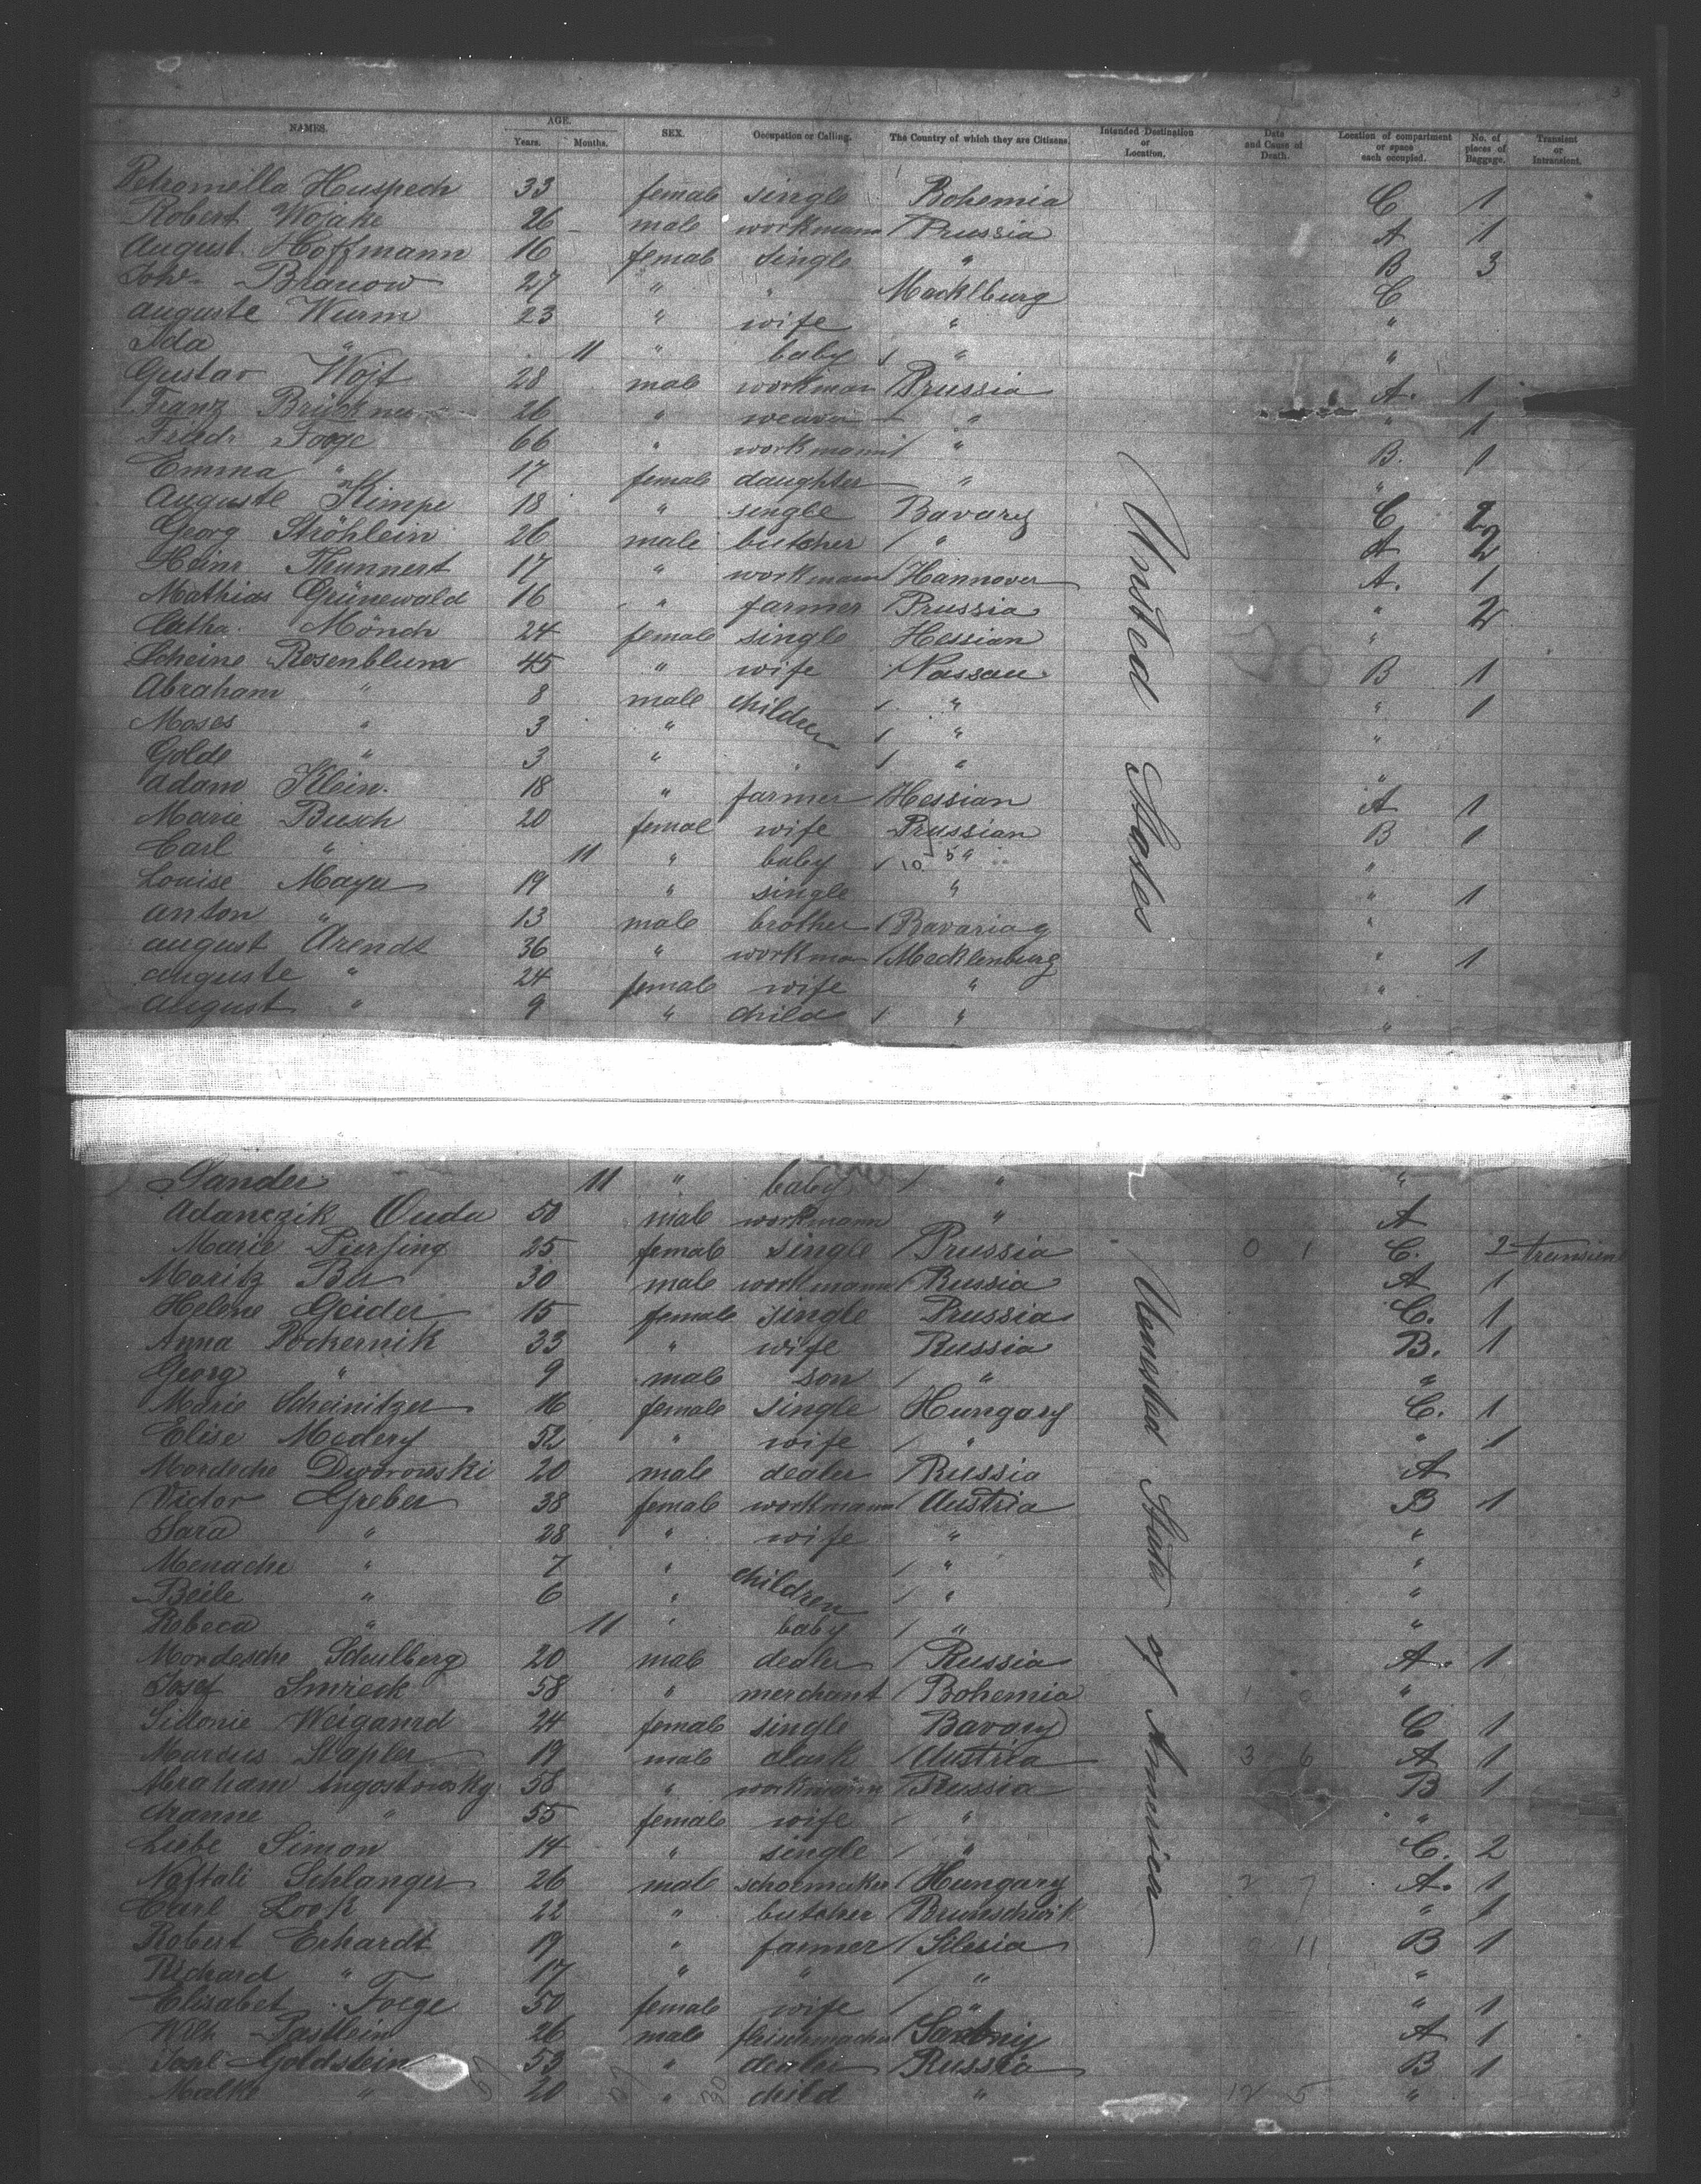 3
NAMES. AGE. Years. Months. SEX. Occupation or Calling. The Country of which they are Citizens. Intended Destination or Location. Date and Cause of Death. Location of compartment or space each occupied. No. of pieces of Baggage. Transient or Intransient.
Petromella Huspech 33 female single Bohemia C 1
Robert Wojake 26 male workmann Prussia A 1
August. Hoffmann 16 female single " B 3
Joh. Brauow 27 " " Mecklburg C
Auguste Wurm 23 " wife " "
Ida " 11 " baby " "
Gustav Wojt 28 male workman Prussia A. 1
Franz Brückner 26 " weaver " " 1
Friedr. Foege 66 " workmann " B. 1
Emma " 17 female daughter " "
Auguste Klimpe 18 " single Bavary C 2
Georg Ströhlein 26 male butcher " A 2
Heinr Thunnert 17 " workmann Hannover A. 1
Mathias Grünewald 16 " farmer Prussia " 2
Catha. Mönch 24 female single Hessian "
Scheine Rosenblum 45 " wife Nassau B 1
Abraham " 8 male children " " 1
Moses " 3 " " "
Golde " 3 " " "
Adam Klein. 18 " farmer Hessian A 1
Marie Busch 20 femal wife Prussian B 1
Carl " 11 " baby 10 5 " "
Louise Mayer 19 " single " " 1
Anton " 13 male brother Bavariag "
August Arendt 36 " workman Mecklenburg " 1
Auguste " 24 female wife " "
August " 9 " child " "
United States
Sander 11 " baby " "
Adanczik Ouda 50 male workmann " A
Marie Pierfing 25 female single Prussia 0 1 C. 2 transient
Moritz Ber 30 male workmann Russia A 1
Helene Geider 15 female single Prussia C. 1
Anna Pochernik 33 " wife Russia B. 1
Georg " 9 male son " "
Marie Scheinitzer 16 female single Hungary C. 1
Elise Medery 52 " wife " " 1
Mordsche Dworowski 20 male dealer Russia A
Victor Greber 38 female workmann Austria B 1
Sara " 28 " wife " "
Menache " 7 " children " "
Beile " 6 " " "
Rebeca " 11 " baby " "
Mordesche Schulberg 20 male dealer Russia A. 1
Josef Smreck 58 " merchant Bohemia "
Sidonie Weigand 24 female single Bavary C 1
Marcus Stapler 19 male clark Austria 3 6 A 1
Abraham Augostowsky 58 " workmann Russia B 1
Channe " 55 female wife " "
Liebe Simon 14 " single " C. 2
Naftali Schlanger 26 male schoemaker Hungary 2 7 A. 1
Carl Look 22 " butcher Brunschwik " 1
Robert Erhardt 19 " farmer Silesia 11 B 1
Richard " 17 " " " "
Elisabet Foege 50 female wife " " 1
Wilh Pastlein 26 male A 1
Goldstein 53 " dealer Russia B 1
Malke " 20 " child " 12 5 "
States of America